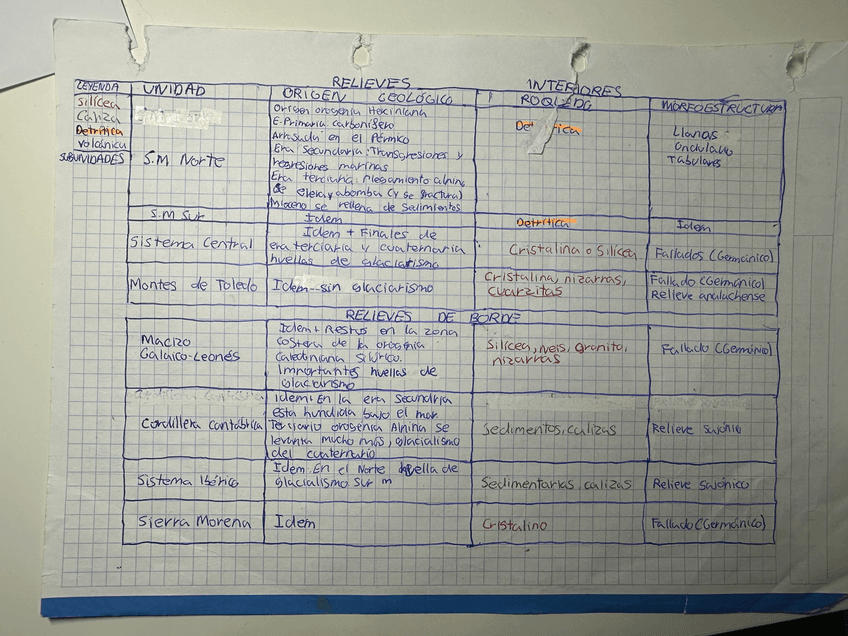 RELIEVES INTERIORES
LEYENDA UNIDAD ORIGEN GEOLÓGICO ROQUEDO MORFOESTRUCTURA
Silícea
Caliza
Detrítica
Volcánica
SUBUNIDADES
S.M Norte
Origen orogenia Herciniana
E. Primaria carbonífero
Arrasada en el Pérmico
Era secundaria: Transgresiones y
regresiones marinas
Era terciaria: Plegamiento alpino
Se eleva y abomba (y se fractura)
Mioceno se rellena de Sedimentos
Detrítica
Llanas
Ondulado
Tabulares
S.M Sur Idem Detrítica Idem
Sistema Central
Idem + Finales de
era terciaria y cuaternaria
huellas de glaciarismo
Cristalina o Silícea
Fallados (Germánico)
Montes de Toledo
Idem--sin glaciarismo
Cristalina, pizarras,
cuarzitas
Fallado (Germánico)
Relieve apalachense
RELIEVES DE BORDE
Macizo
Galaico-Leonés
Idem + Restos en la zona
costera de la orogenia
Caledoniana Silúrico.
Importantes huellas de
glaciarismo
Silícea, neis, granito,
pizarras
Fallado (Germánico)
Cordillera cantábrica
Idem: En la era secundria
esta hundida bajo el mar
Terciario orogénia Alpina se
levanta mucho más, glacialismo
del cuaternario
Sedimentos, calizas
Relieve sajónio
Sistema Ibérico
Idem. En el Norte huella de
glacialismo sur m
Sedimentarias, calizas
Relieve sajónico
Sierra Morena Idem Cristalino Fallado (Germánico)